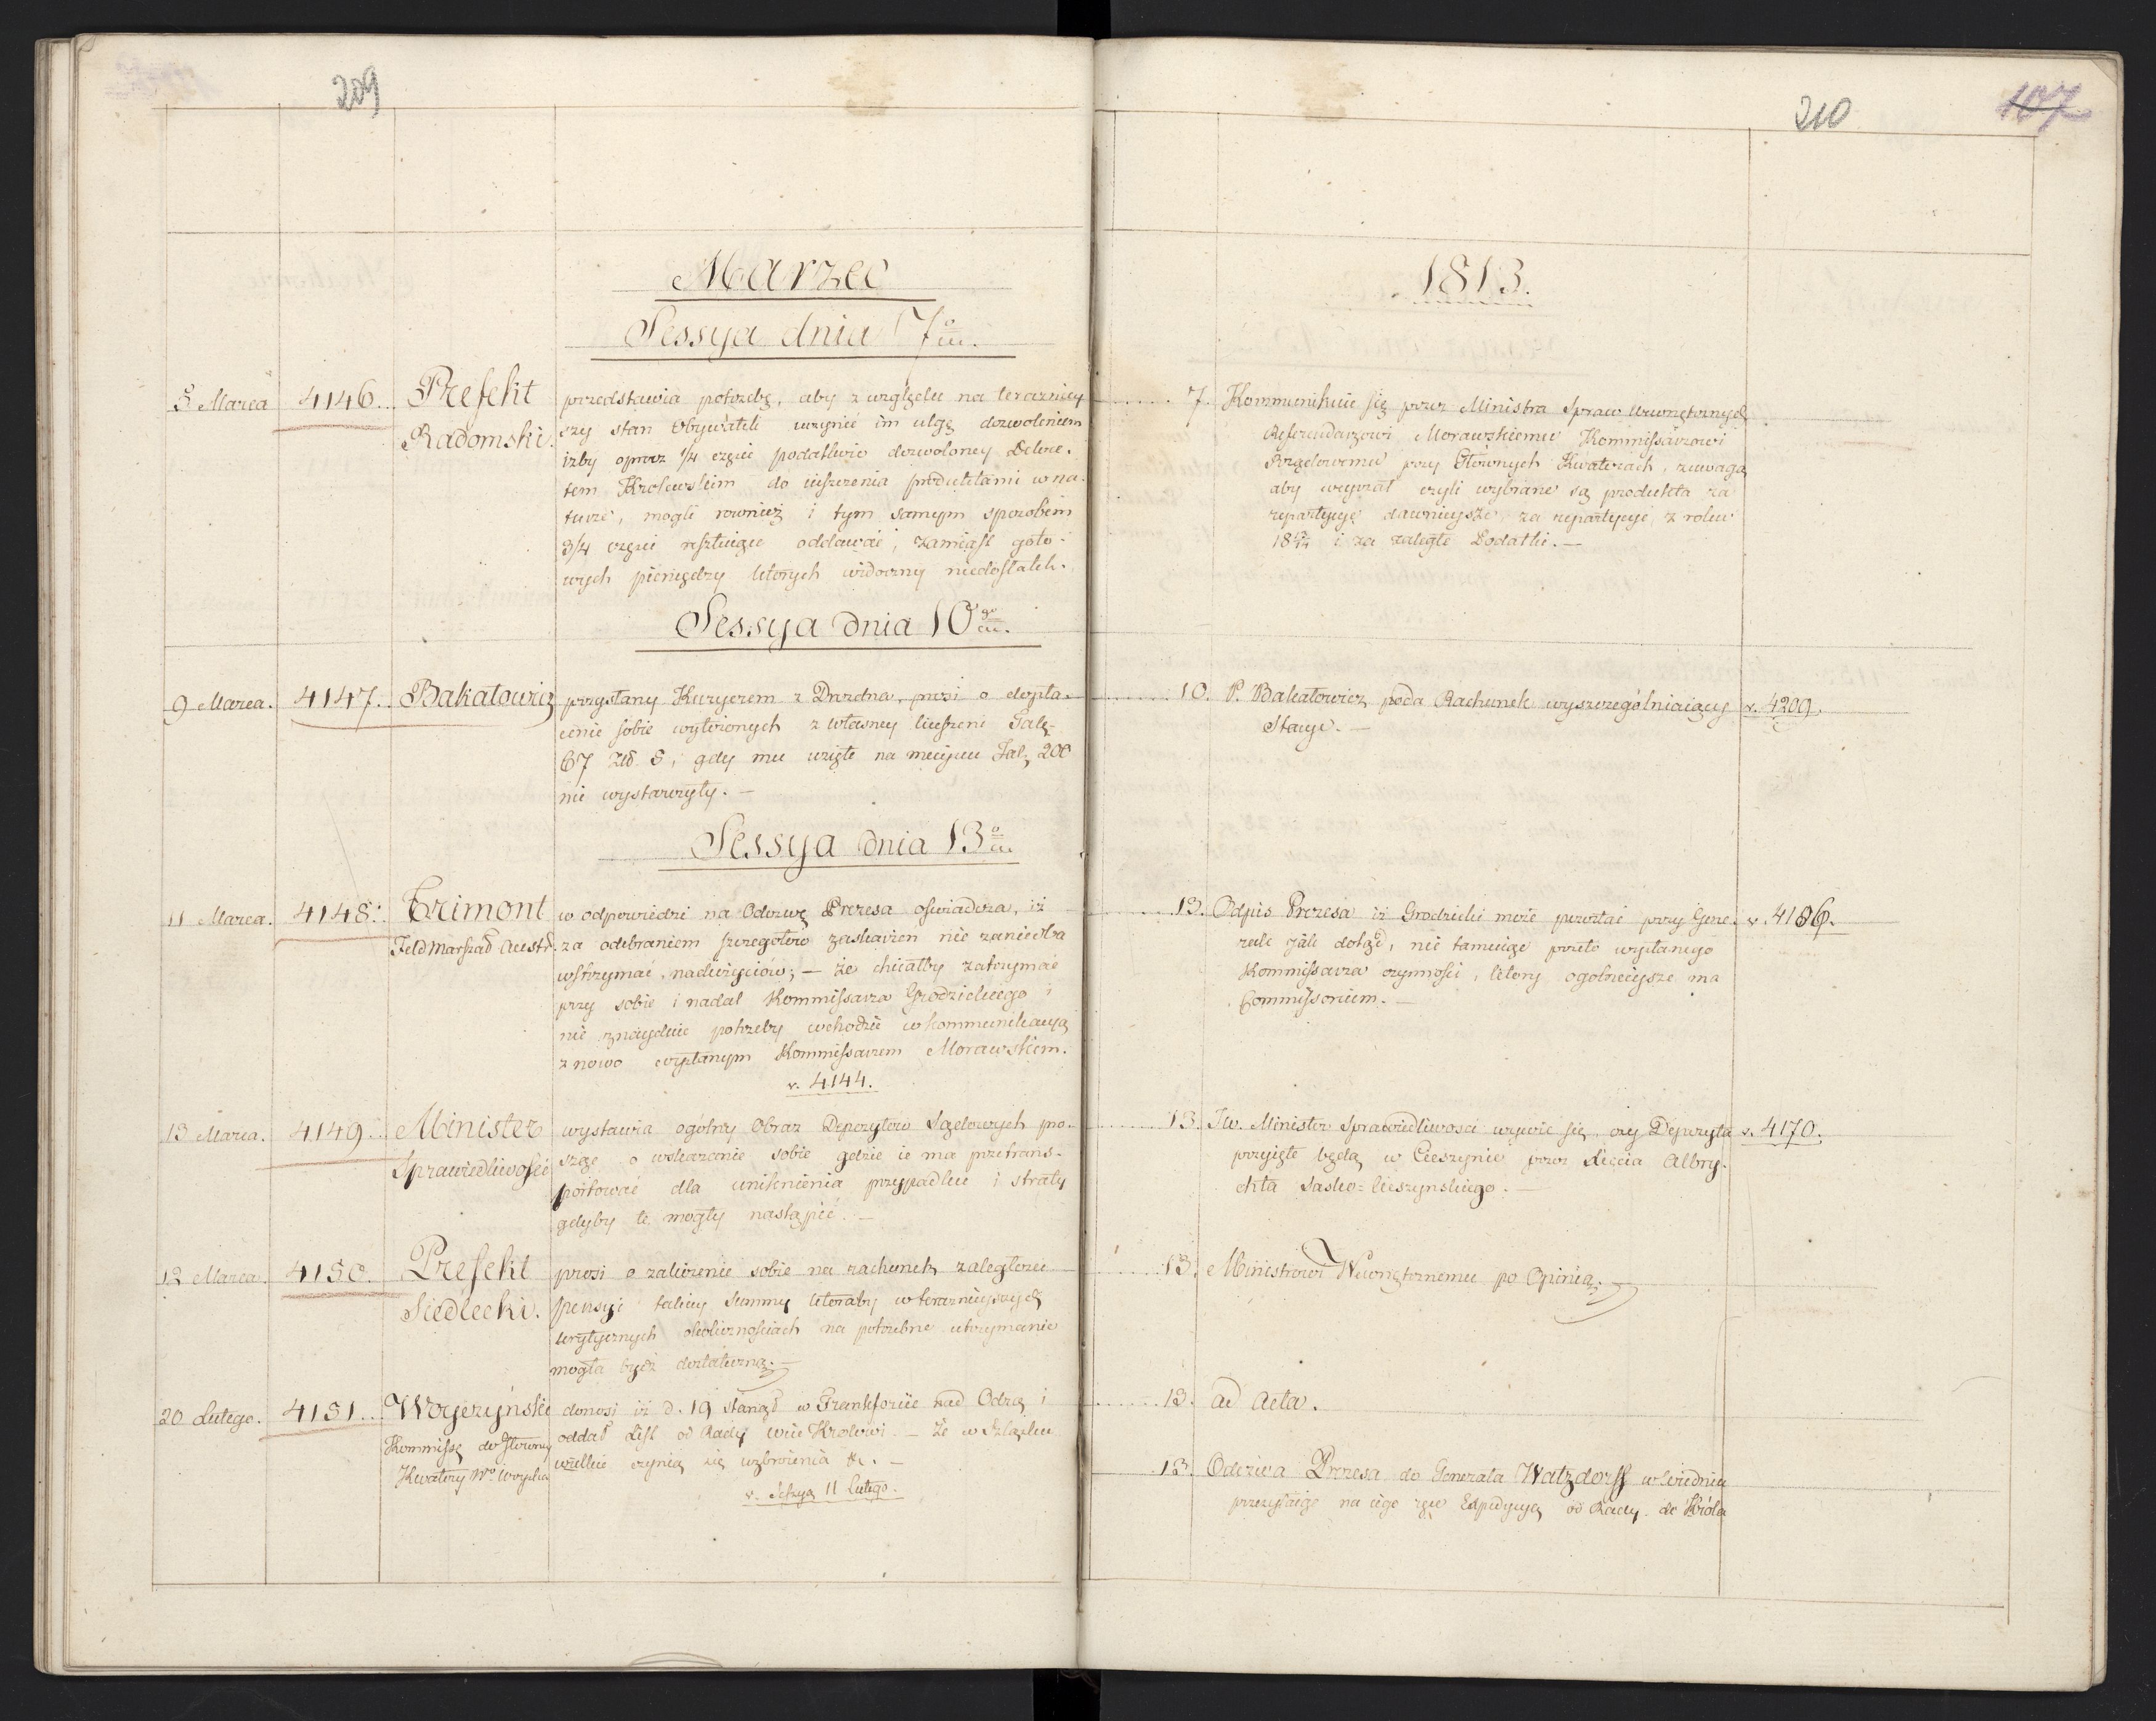 209
Marzec
Sessya dnia 7o
5 Marca 4146. Prefekt Radomski.
przedstawia potrzebę, aby z względu na terazniey
szy stan Obywateli uczynić im ulgę dozwoleniem
izby oprócz 1/4 części podatków dozwoloney Dekre.
tem Krolewskim do uiszczenia produktami w na.
turze, mogli rownież i tym samym sposobem
3/4 części resztuiące oddawać, zamiast goto-
wych pieniędzy których widoczny niedostatek.
Sessya dnia 10go
9 Marca. 4147. Bakałowicz
przysłany Kuryerem z Drezna, prosi o dopła-
cenie sobie wyłożonych z własney kieszeni Tal.
67 zł. 5, gdy mu wzięte na mieyscu Tal. 200
nie wystarczyły. —
Sessya dnia 13o
11 Marca. 4148. Frimont
Feldmarszał Austr.
w odpowiedzi na Odezwę Prezesa oświadcza, iż
za odebraniem szczegółów zaskarżeń nie zaniedba
wstrzymać nadużyciów; — że chciałby zatrzymać
przy sobie i nadal Kommissarza Grodzickiego i
nie znayduie potrzeby wchodzić w kommunikacyą
z nowo wysłanym Kommissarzem Morawskiem.
v. 4144.
13 Marca. 4149. Minister Sprawiedliwości
wystawia ogólny Obraz Depozytów Sądowych pro-
sząc o wskazanie sobie gdzie ie ma przetrans-
portować dla uniknienia przypadku i straty
gdyby te mogły nastąpić. —
12 Marca. 4150. Prefekt Siedlecki.
prosi o zaliczenie sobie na rachunek zaległości
pensyi takiey Summy któraby w teraznieyszych
krytycznych okolicznościach na potrzebne utrzymanie
mogła bydź dostateczną. —
20 Lutego. 4151. Woyczyński
Kommiss. do Główney
Kwatery Wo. Woyska
donosi iż d. 19 stanął w Frankforcie nad Odrą i
oddał List od Rady Vice Krolowi. — Że w Szląsku
wielkie czynią się uzbroienia &c. —
v. Sessyą 11 Lutego.
210
107
1813.
7. Kommunikuie się przez Ministra Spraw Wewnętrznych
Referendarzowi Morawskiemu Kommissarzowi
Rządowemu przy Głównych Kwaterach, z uwagą
aby czyli wybrane są produkta za
repartycyę dawnieysze, za repartycyę z roku
18 i za zaległe Podatki. —
10. P. Bakałowicz poda Rachunek wyszczególniaiący v. 4209.
Stacye. —
13. Odpis Prezesa iż Grodzicki może pozostać przy Gene- v. 4186.
rale jak dotąd, nie tamuiąc przeto wysłanego
Kommissarza czynności, który ogólnieysze ma
Commissorium. —
13. JW. Minister Sprawiedliwości czy Depozyta v. 4170.
przyięte będą w Cieszynie przez Xięcia Albry-
chta Sasko-Cieszynskiego. —
13. Ministrowi Wewnętrznemu po Opinią.
13. ad Acta.
13. Odezwa Prezesa do Generała Watzdorff w Wiedniu
przesyłaiąc na iego ręce Expedycyą od Rady do Króla